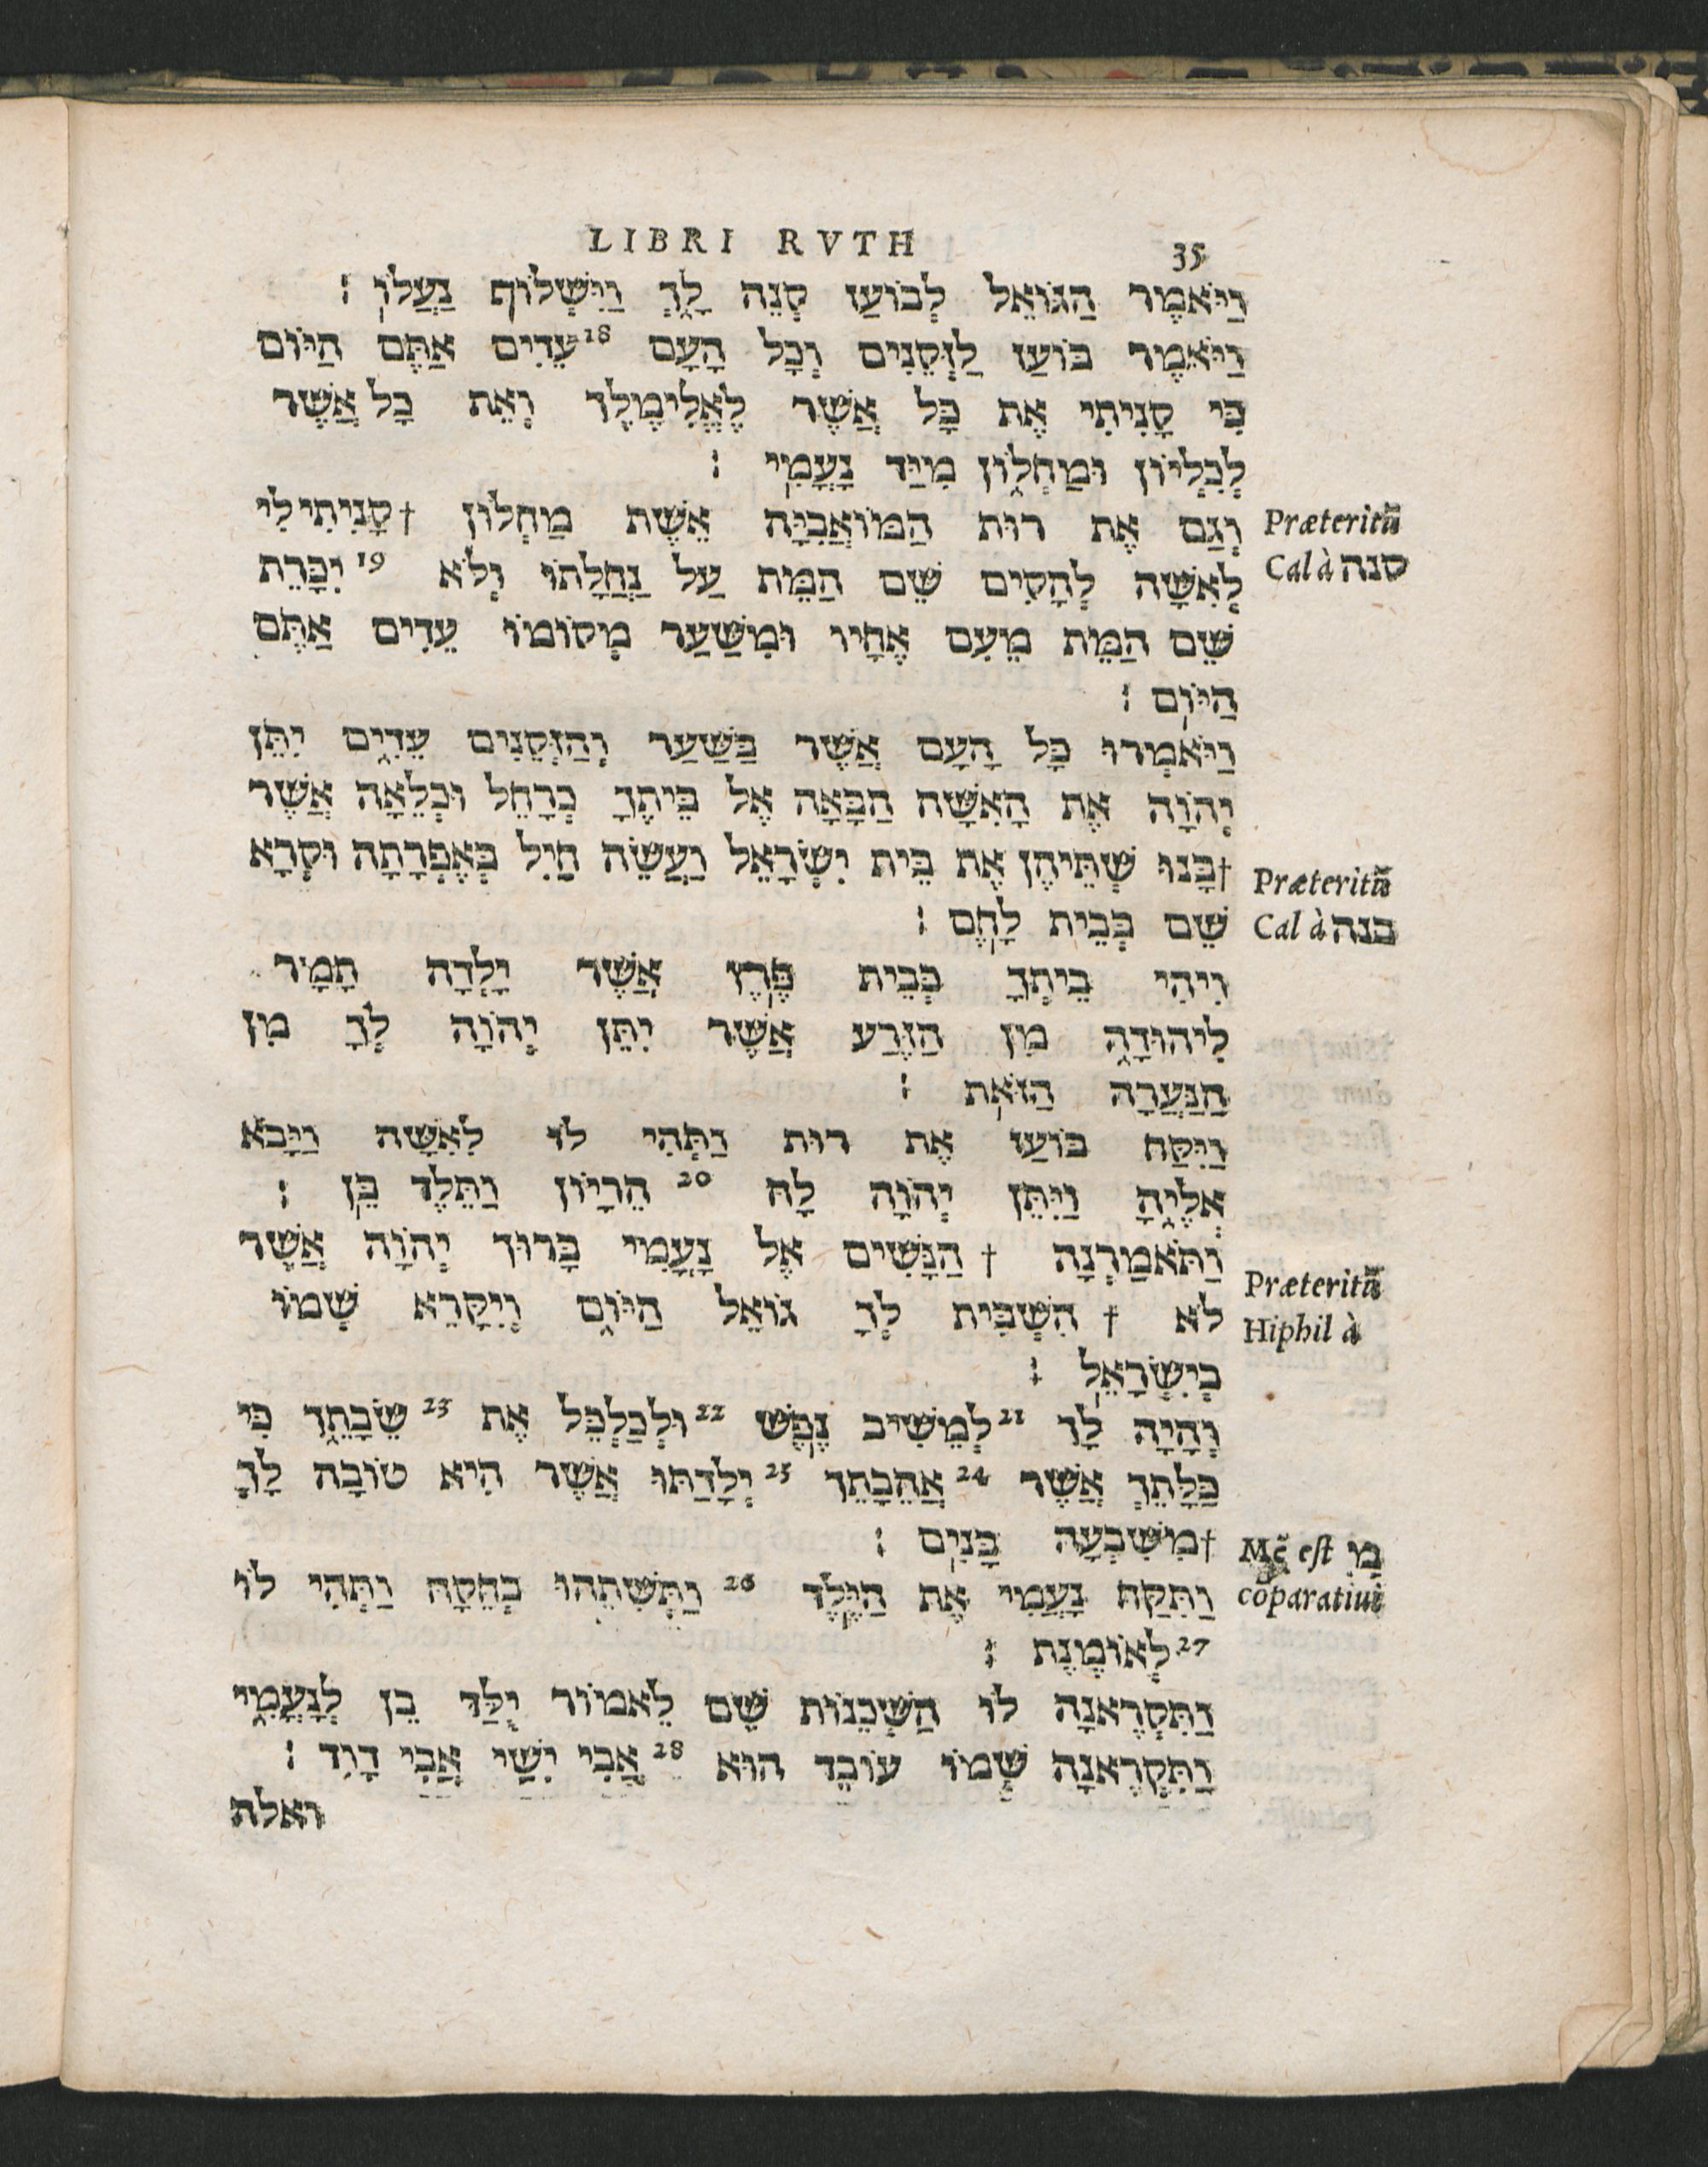 LIBRI RVTH 35
וַיֹּאמֶר הַגּוֹאֵל לְבוֹעַז קְנֵה לָךְ וַיִּשְׁלוֹף נַעֲלוֹ :
וַיֹּאמֶר בּוֹעַז לַזְּקֵנִים וְכָל הָעָם 18 עֵדִים אַתֶּם הַיּוֹם
כִּי קָנִיתִי אֶת כָּל אֲשֶׁר לֶאֱלִימֶלֶךְ וְאֵת כָל אֲשֶׁר
לְכִלְיוֹן וּמַחְלוֹן מִיַּד נָעֳמִי :
וְגַם אֶת רוּת הַמּוֹאֲבִיָּה אֵשֶׁת מַחְלוֹן † קָנִיתִי לִי
לְאִשָּׁה לְהָקִים שֵׁם הַמֵּת עַל נַחֲלָתוֹ וְלֹא 19 יִכָּרֵת
שֵׁם הַמֵּת מֵעִם אֶחָיו וּמִשַּׁעַר מְקוֹמוֹ עֵדִים אַתֶּם
הַיּוֹם :
וַיֹּאמְרוּ כָּל הָעָם אֲשֶׁר בַּשַּׁעַר וְהַזְּקֵנִים עֵדִים יִתֵּן
יְהֹוָה אֶת הָאִשָּׁה הַבָּאָה אֶל בֵּיתֶךָ כְּרָחֵל וּכְלֵאָה אֲשֶׁר
† בָּנוּ שְׁתֵּיהֶן אֶת בֵּית יִשְׂרָאֵל וַעֲשֵׂה חַיִל בְּאֶפְרָתָה וּקְרָא
שֵׁם בְּבֵית לָחֶם :
וִיהִי בֵיתְךָ כְּבֵית פֶּרֶץ אֲשֶׁר יָלְדָה תָמָר
לִיהוּדָה מִן הַזֶּרַע אֲשֶׁר יִתֵּן יְהֹוָה לְךָ מִן
הַנַּעֲרָה הַזֹּאת :
וַיִּקַּח בּוֹעַז אֶת רוּת וַתְּהִי לוֹ לְאִשָּׁה וַיָּבֹא
אֵלֶיהָ וַיִּתֵּן יְהֹוָה לָהּ 20 הֵרָיוֹן וַתֵּלֶד בֵּן :
וַתֹּאמַרְנָה † הַנָּשִׁים אֶל נָעֳמִי בָּרוּךְ יְהֹוָה אֲשֶׁר
לֹא † הִשְׁבִּית לָךְ גּוֹאֵל הַיּוֹם וְיִקָּרֵא שְׁמוֹ
בְּיִשְׂרָאֵל :
וְהָיָה לָךְ 21 לְמֵשִׁיב נֶפֶשׁ 22 וּלְכַלְכֵּל אֶת 23 שֵׂבָתֵךְ כִּי
כַלָּתֵךְ אֲשֶׁר 24 אֲהֵבָתֶךְ 25 יְלָדַתּוּ אֲשֶׁר הִיא טוֹבָה לָךְ
† מִשִּׁבְעָה בָּנִים :
וַתִּקַּח נָעֳמִי אֶת הַיֶּלֶד 26 וַתְּשִׁתֵהוּ בְחֵקָהּ וַתְּהִי לוֹ
27 לְאוֹמֶנֶת :
וַתִּקְרֶאנָה לוֹ הַשְּׁכֵנוֹת שֵׁם לֵאמוֹר יֻלַּד בֵּן לְנָעֳמִי
וַתִּקְרֶאנָה שְׁמוֹ עוֹבֵד הוּא 28 אֲבִי יִשַׁי אֲבִי דָוִד :
ואלה
Præteritũ
Cal à קנה
Præteritũ
Cal à בנה
Præteritũ
Hiphil à
Mẽ est מִ
cōparatiui